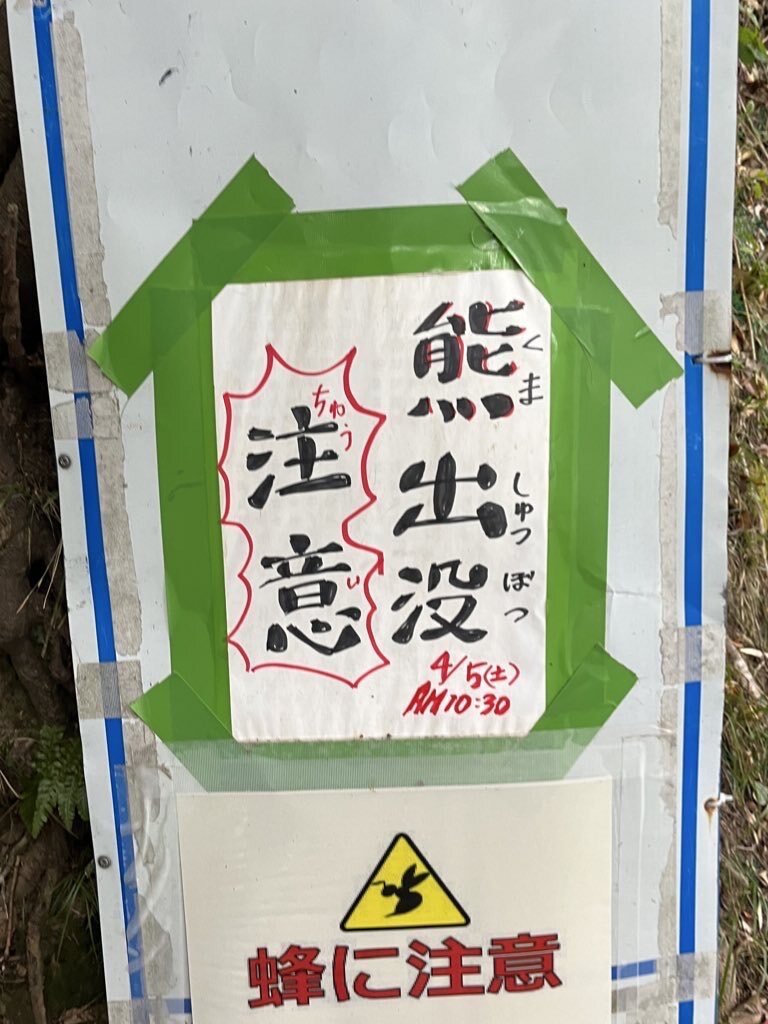 熊出没
くま しゅつ ぼつ
注意
ちゅうい
4/5(土)
AM10:30
蜂に注意